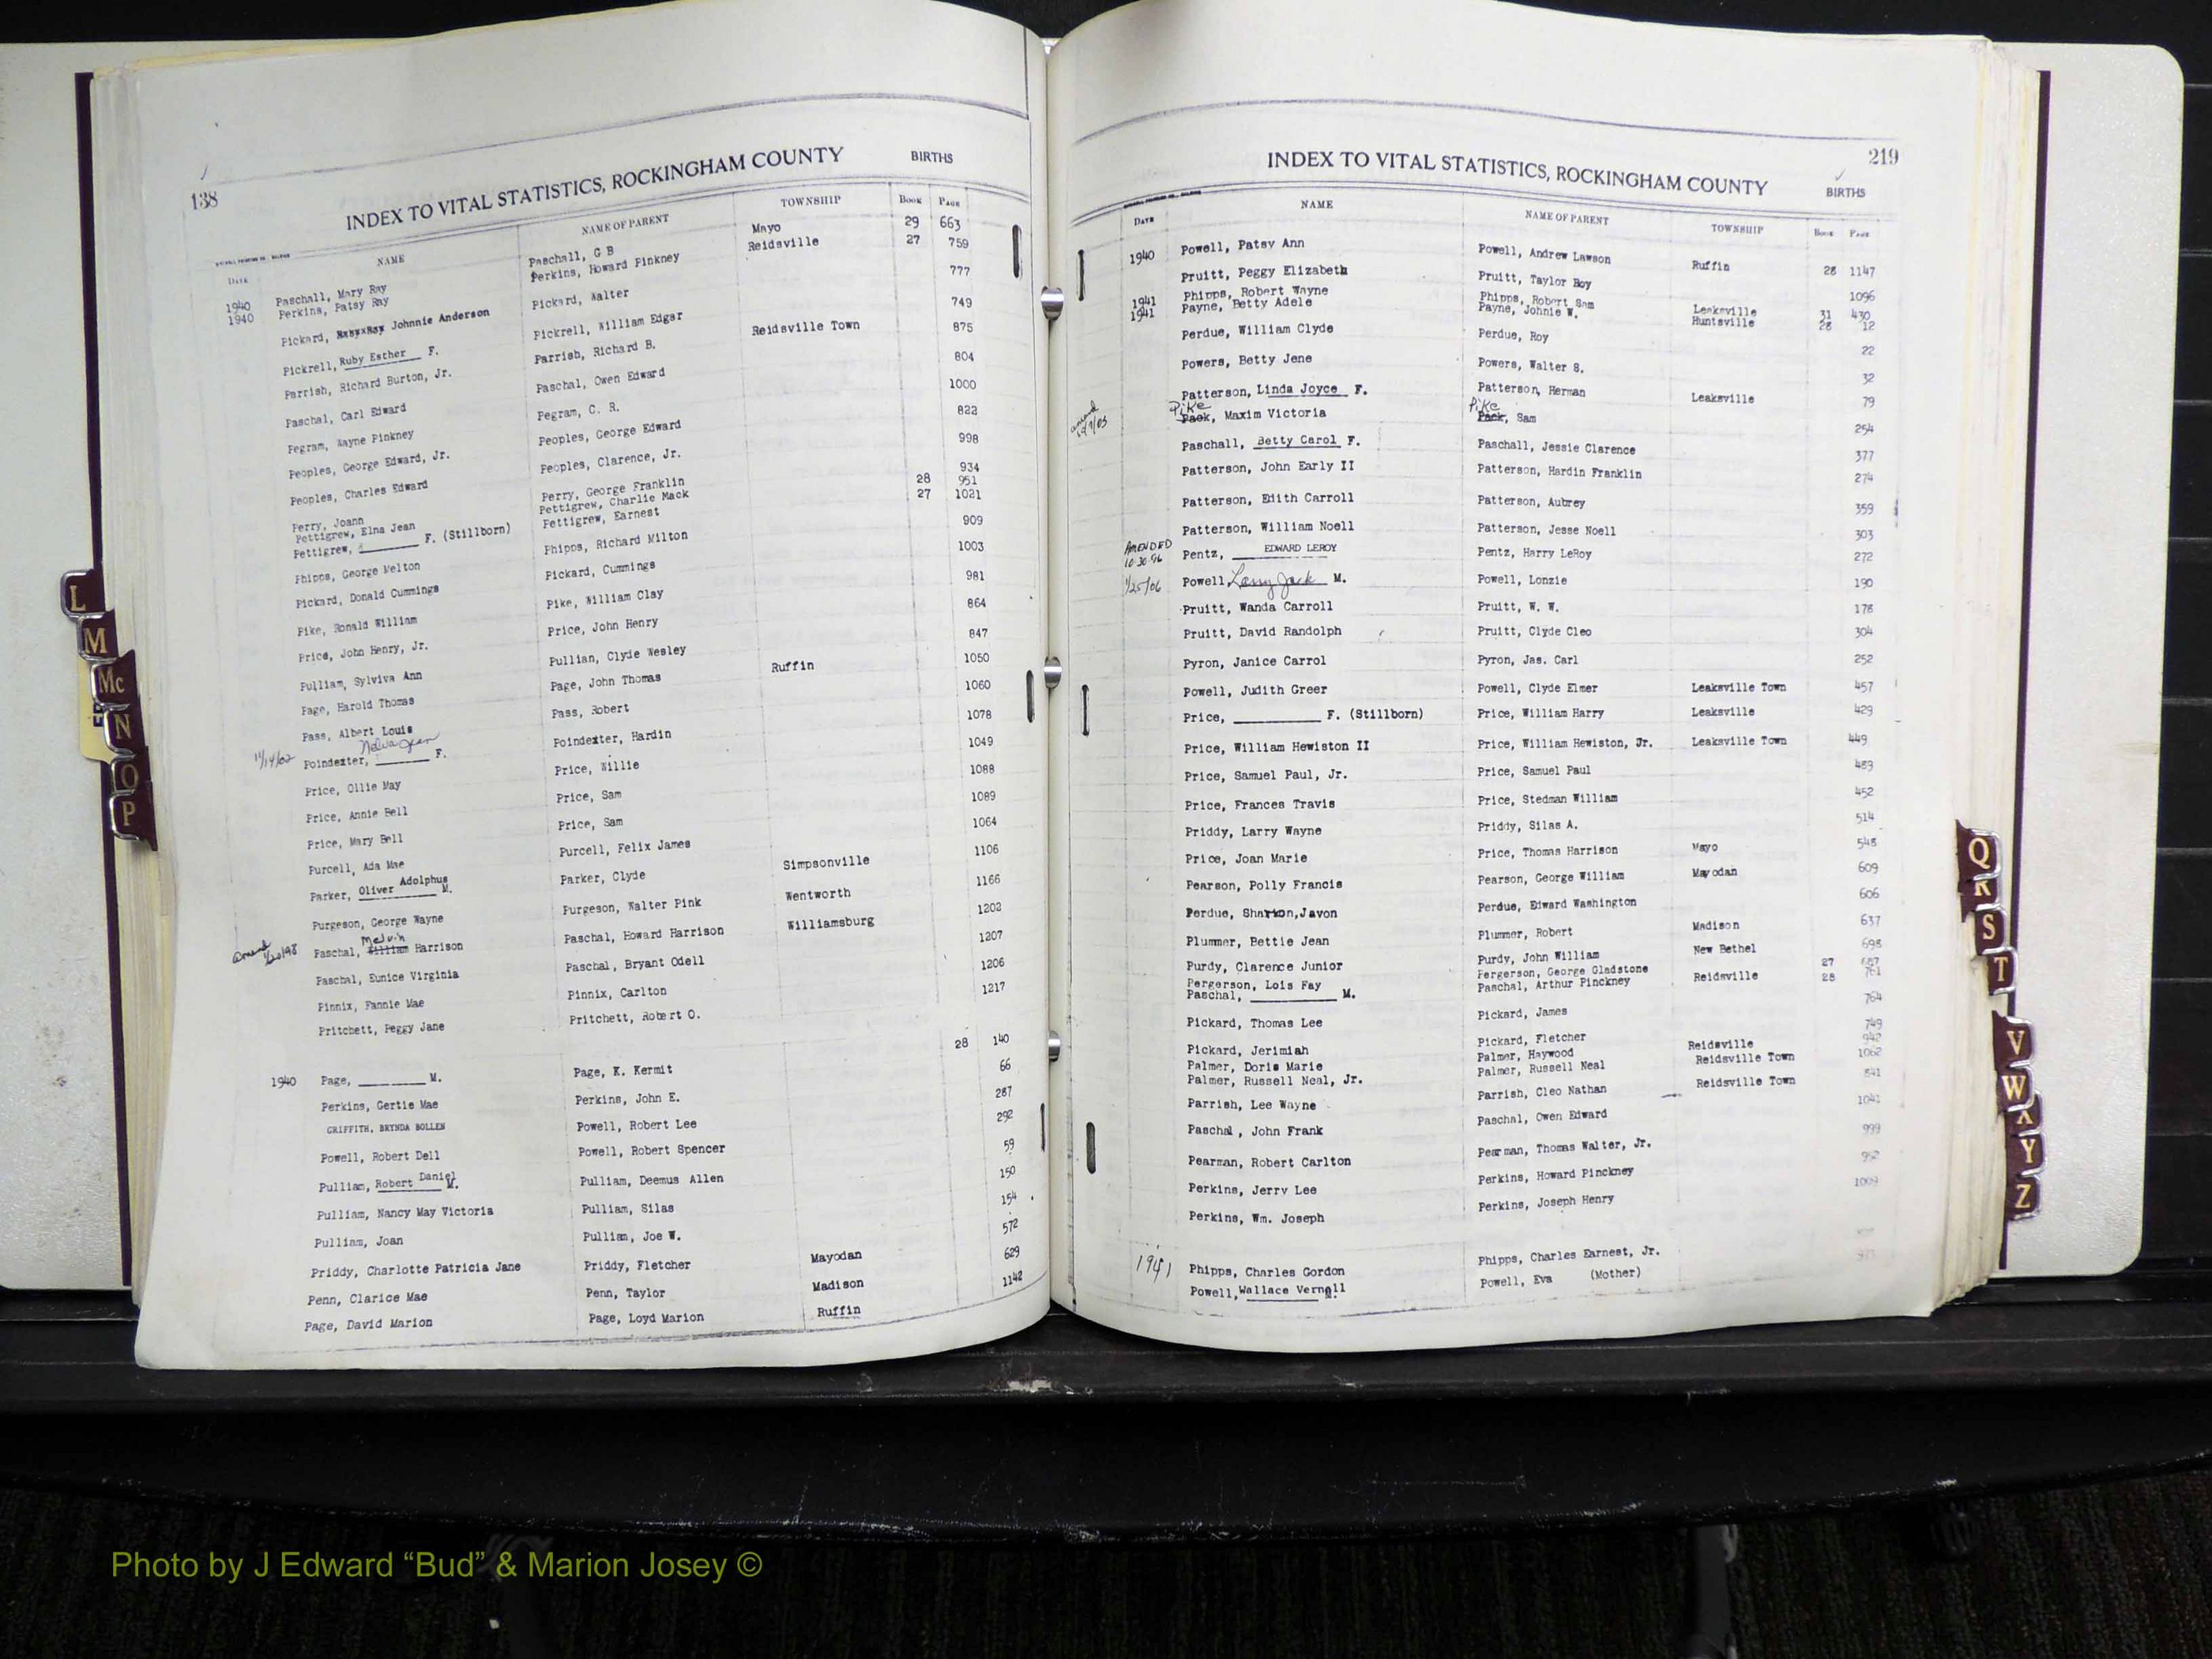 138
INDEX TO VITAL STATISTICS, ROCKINGHAM COUNTY BIRTHS
DATE NAME NAME OF PARENT TOWNSHIP BOOK PAGE
1940 Paschall, Mary Ray Paschall, G B Mayo 29 663
1940 Perkins, Patsy Ray Perkins, Howard Pinkney Reidsville 27 759
Pickard, Johnnie Anderson Pickard, Walter 777
Pickrell, Ruby Esther F. Pickrell, William Edgar 749
Parrish, Richard Burton, Jr. Parrish, Richard B. Reidsville Town 875
Paschal, Carl Edward Paschal, Owen Edward 804
Pegram, Wayne Pinkney Pegram, C. R. 1000
Peoples, George Edward, Jr. Peoples, George Edward 822
Peoples, Charles Edward Peoples, Clarence, Jr. 998
Perry, Joann Perry, George Franklin 934
Pettigrew, Elna Jean Pettigrew, Charlie Mack 28 951
Pettigrew, F. (Stillborn) Pettigrew, Earnest 27 1021
Phipps, George Melton Phipps, Richard Milton 909
Pickard, Donald Cummings Pickard, Cummings 1003
Pike, Ronald William Pike, William Clay 981
Price, John Henry, Jr. Price, John Henry 864
Pulliam, Sylviva Ann Pullian, Clyde Wesley 847
Page, Harold Thomas Page, John Thomas Ruffin 1050
Pass, Albert Louis Pass, Robert 1060
11/14/02 Poindexter, Nelva Jean F. Poindexter, Hardin 1078
Price, Ollie May Price, Willie 1049
Price, Annie Bell Price, Sam 1088
Price, Mary Bell Price, Sam 1089
Purcell, Ada Mae Purcell, Felix James 1064
Parker, Oliver Adolphus M. Parker, Clyde Simpsonville 1106
Purgeson, George Wayne Purgeson, Walter Pink Wentworth 1166
Amend Paschal, Melvin William Harrison Paschal, Howard Harrison Williamsburg 1202
Paschal, Eunice Virginia Paschal, Bryant Odell 1207
Pinnix, Fannie Mae Pinnix, Carlton 1206
Pritchett, Peggy Jane Pritchett, Robert O. 1217
1940 Page, M. Page, K. Kermit 28 140
Perkins, Gertie Mae Perkins, John E. 66
GRIFFITH, BRYNDA BOLLEN Powell, Robert Lee 287
Powell, Robert Dell Powell, Robert Spencer 292
Pulliam, Robert Daniel M. Pulliam, Deemus Allen 59
Pulliam, Nancy May Victoria Pulliam, Silas 150
Pulliam, Joan Pulliam, Joe W. 154
Priddy, Charlotte Patricia Jane Priddy, Fletcher Mayodan 572
Penn, Clarice Mae Penn, Taylor Madison 629
Page, David Marion Page, Loyd Marion Ruffin 1142
219
INDEX TO VITAL STATISTICS, ROCKINGHAM COUNTY BIRTHS
DATE NAME NAME OF PARENT TOWNSHIP BOOK PAGE
1940 Powell, Patsy Ann Powell, Andrew Lawson Ruffin 28 1147
Pruitt, Peggy Elizabeth Pruitt, Taylor Roy 1096
1941 Phipps, Robert Wayne Phipps, Robert Sam Leaksville 31 430
1941 Payne, Betty Adele Payne, Johnie W. Huntsville 28 12
Perdue, William Clyde Perdue, Roy 22
Powers, Betty Jene Powers, Walter S. 32
Patterson, Linda Joyce F. Patterson, Herman Leaksville 79
Pike Pack, Maxim Victoria Pike Pack, Sam 254
Paschall, Betty Carol F. Paschall, Jessie Clarence 377
Patterson, John Early II Patterson, Hardin Franklin 274
Patterson, Edith Carroll Patterson, Aubrey 359
Patterson, William Noell Patterson, Jesse Noell 303
AMENDED 10-30-96 Pentz, EDWARD LEROY Pentz, Harry LeRoy 272
1/25/06 Powell, Larry Jack M. Powell, Lonzie 190
Pruitt, Wanda Carroll Pruitt, W. W. 178
Pruitt, David Randolph Pruitt, Clyde Cleo 304
Pyron, Janice Carrol Pyron, Jas. Carl 252
Powell, Judith Greer Powell, Clyde Elmer Leaksville Town 457
Price, F. (Stillborn) Price, William Harry Leaksville 429
Price, William Hewiston II Price, William Hewiston, Jr. Leaksville Town 449
Price, Samuel Paul, Jr. Price, Samuel Paul 489
Price, Frances Travis Price, Stedman William 452
Priddy, Larry Wayne Priddy, Silas A. 514
Price, Joan Marie Price, Thomas Harrison Mayo 548
Pearson, Polly Francis Pearson, George William Mayodan 609
Perdue, Sharion,Javon Perdue, Edward Washington 606
Plummer, Bettie Jean Plummer, Robert Madison 637
Purdy, Clarence Junior Purdy, John William New Bethel 698
Pergerson, Lois Fay Pergerson, George Gladstone 27
Paschal, M. Paschal, Arthur Pinckney Reidsville 28 761
Pickard, Thomas Lee Pickard, James 764
Pickard, Jerimiah Pickard, Fletcher 749
Palmer, Doris Marie Palmer, Haywood Reidsville 942
Palmer, Russell Neal, Jr. Palmer, Russell Neal Reidsville Town 1062
Parrish, Lee Wayne Parrish, Cleo Nathan Reidsville Town 841
Paschal, John Frank Paschal, Owen Edward 1041
Pearman, Robert Carlton Pearman, Thomas Walter, Jr. 999
Perkins, Jerry Lee Perkins, Howard Pinckney 952
Perkins, Wm. Joseph Perkins, Joseph Henry 1009
1941 Phipps, Charles Gordon Phipps, Charles Earnest, Jr.
Powell, Wallace Vernell Powell, Eva (Mother)
L
M
Mc
N
O
P
Q
R
S
T
V
W
X
Y
Z
Photo by J Edward “Bud” & Marion Josey ©